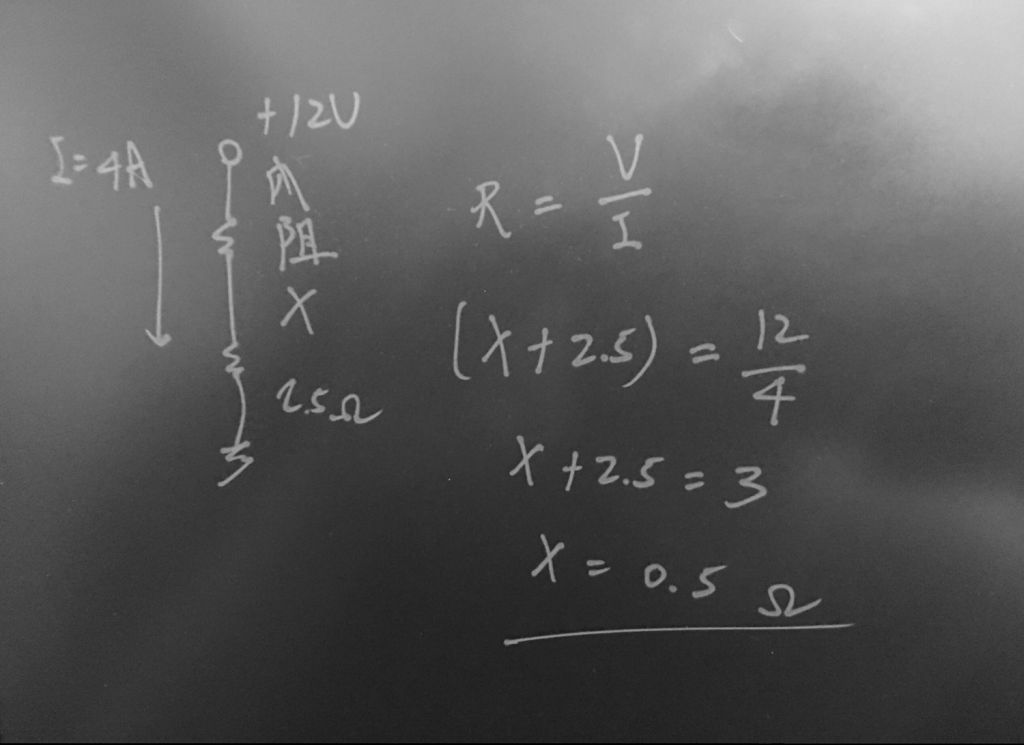 +12V
I=4A
内
阻
X
2.5Ω
R = V/I
(X+2.5) = 12/4
X+2.5=3
X= 0.5 Ω